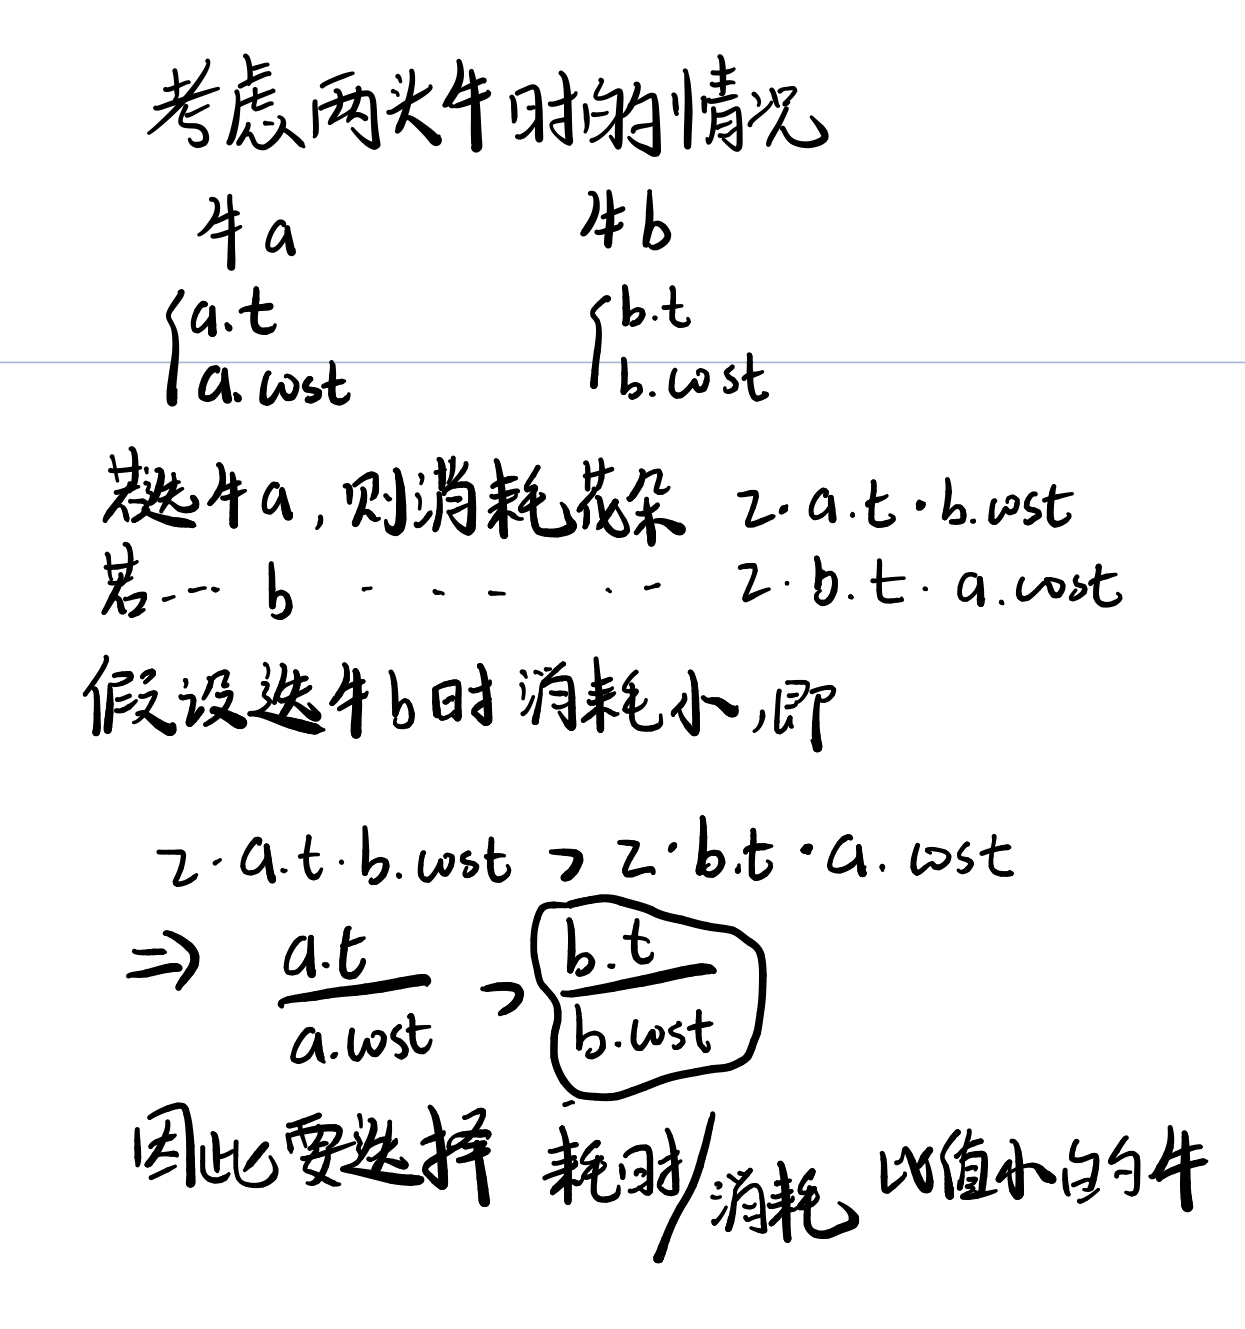 考虑两头牛时的情况
牛a 牛b
{a.t {b.t
a.cost b.cost
若选牛a,则消耗花朵 2·a.t·b.cost
若--- b - - - - - 2·b.t·a.cost
假设选牛b时消耗小,即
2·a.t·b.cost > 2·b.t·a.cost
⇒ a.t/a.cost > b.t/b.cost
因此要选择 耗时/消耗 比值小的牛